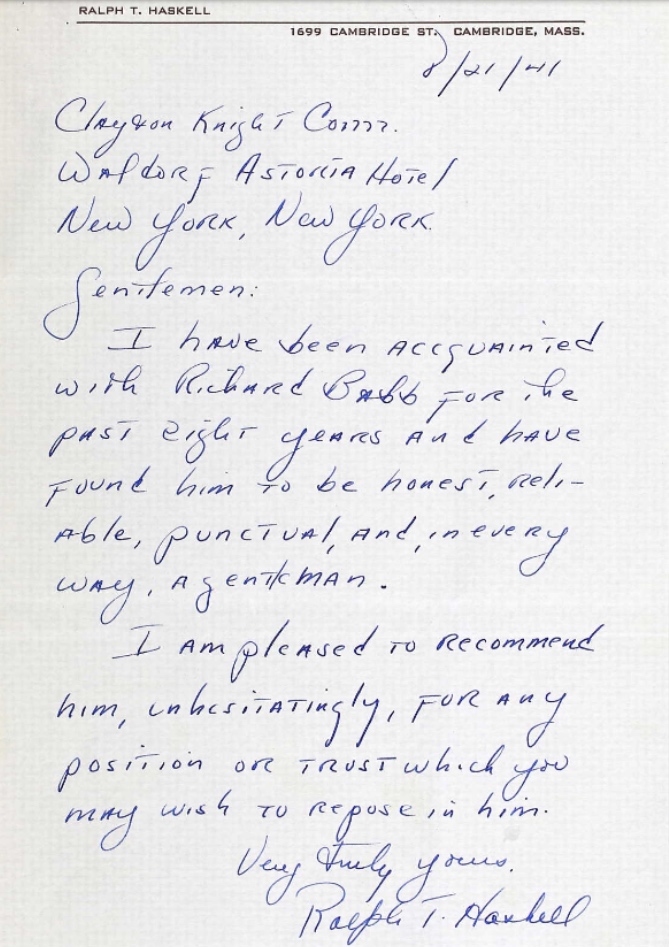 RALPH T. HASKELL
1699 CAMBRIDGE ST. CAMBRIDGE, MASS.
8/21/41
Clayton Knight Comm.
Waldorf Astoria Hotel
New York, New York.
Gentlemen:
I have been accquainted
with Richard Babb for the
past eight years and have
found him to be honest, reli-
able, punctual, and, in every
way, a gentleman.
I am pleased to recommend
him, unhesitatingly, for any
position or trust which you
may wish to repose in him.
Very truly yours.
Ralph T. Haskell